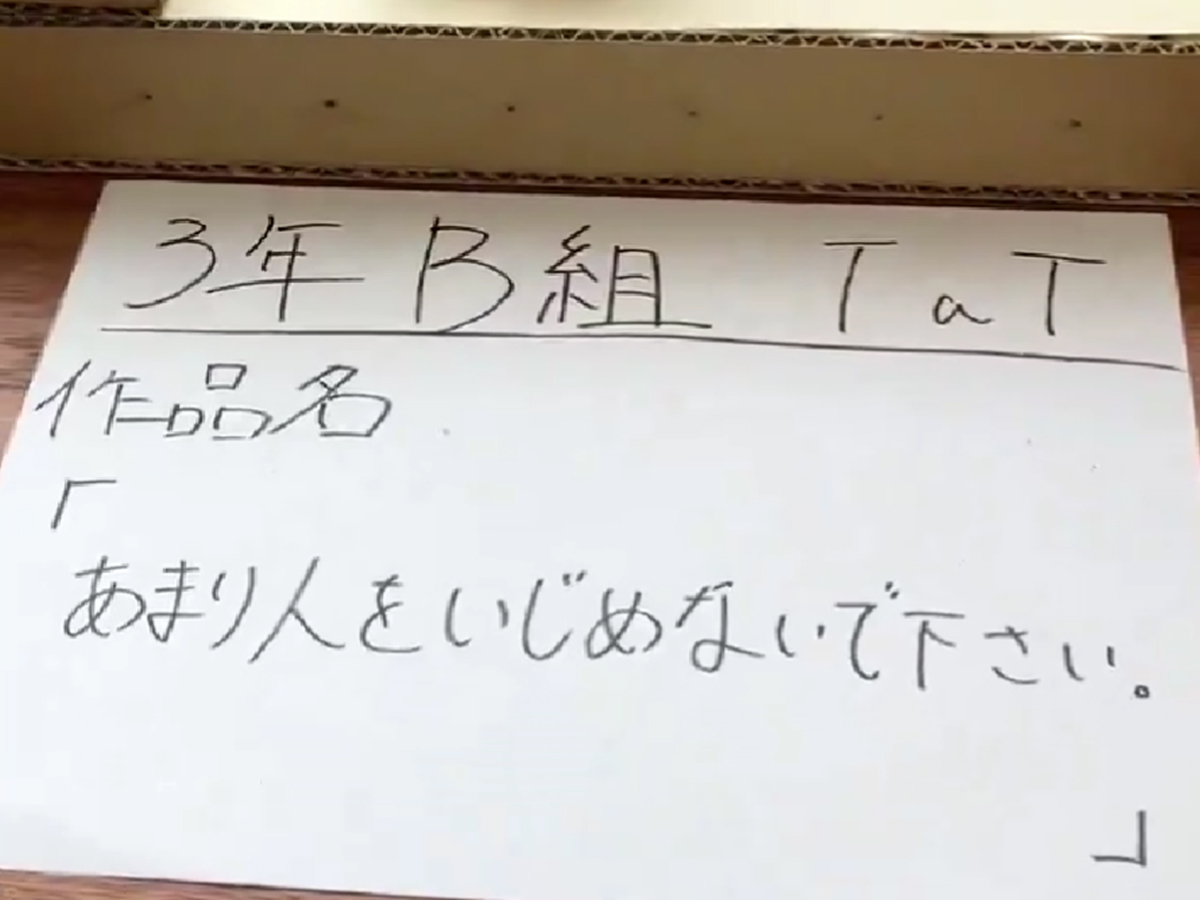 3年 B組 TaT
作品名
「
あまり人をいじめないで下さい。
」